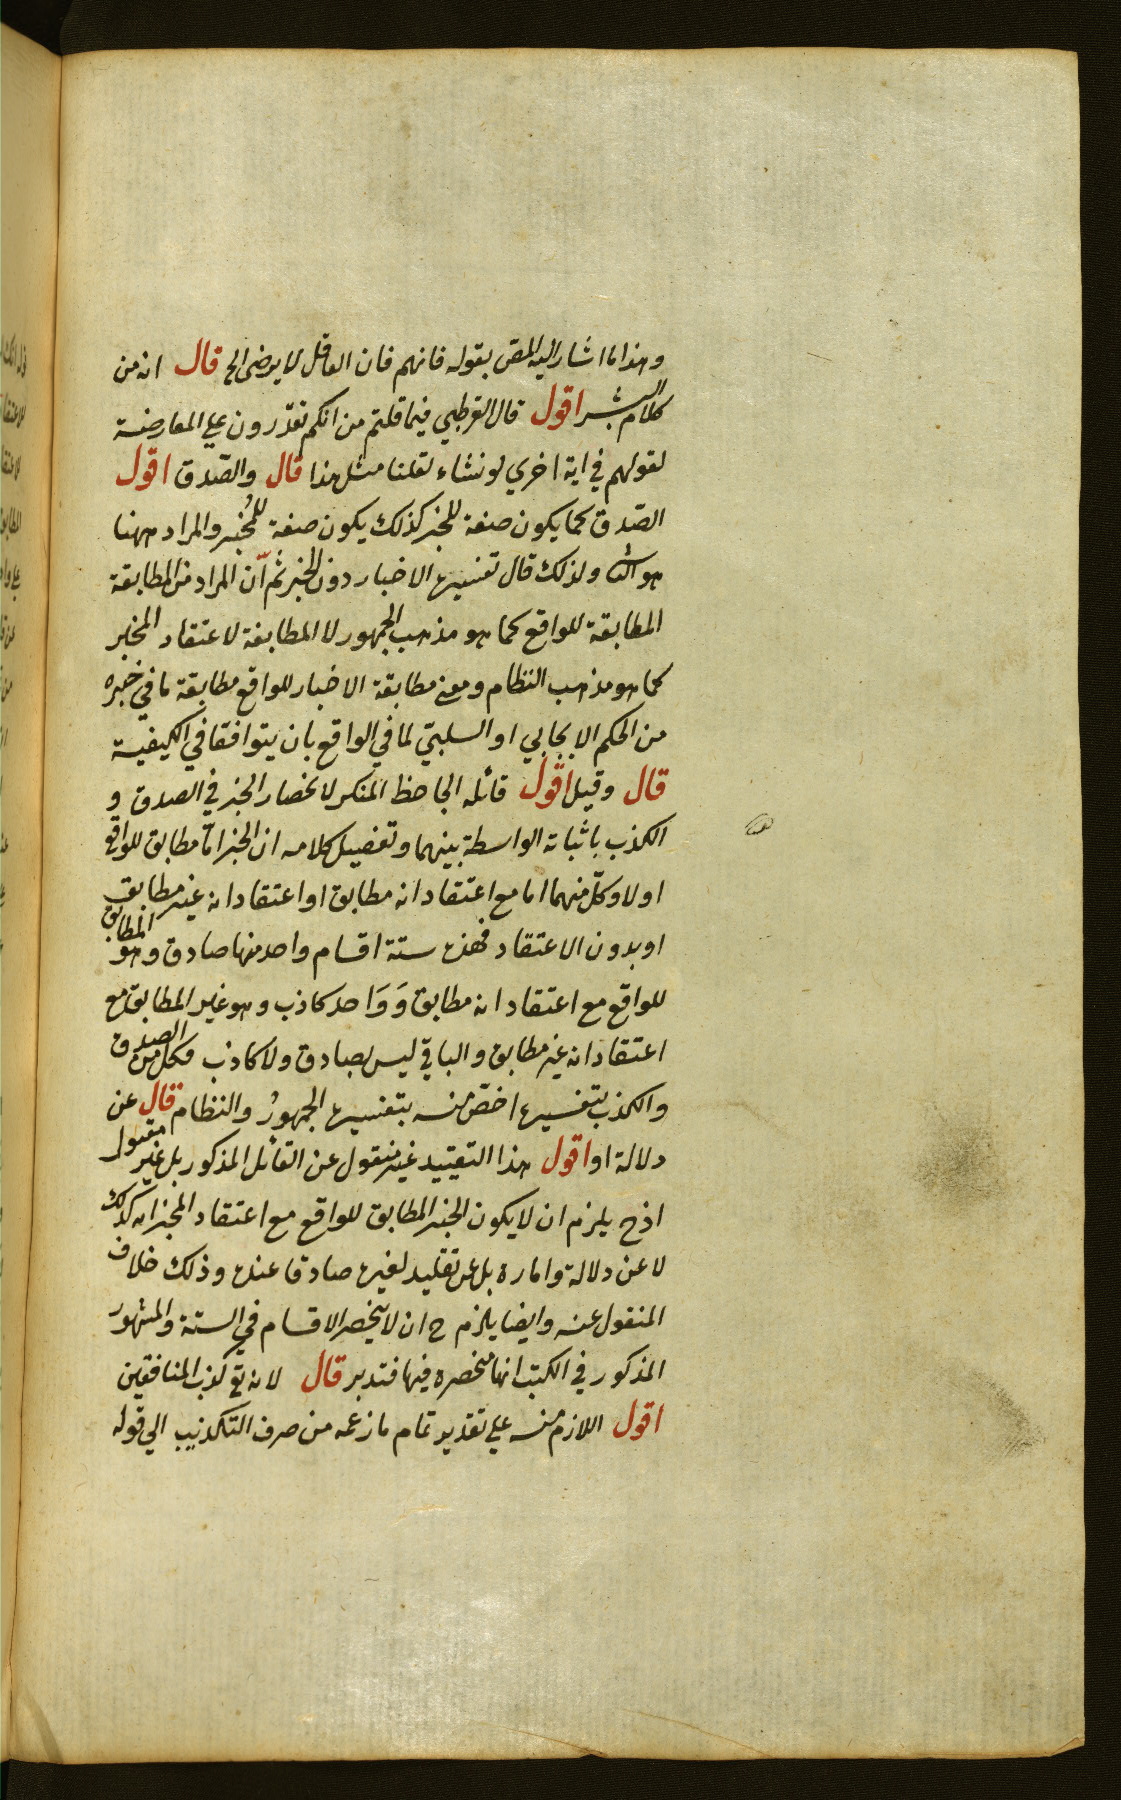 وهذا ما اشار اليه المص بقوله فانهم فان العاقل لا يرضى الخ قال انه من
كلام البشر اقول قال القرطبي فيما قلتم من انكم تقدرون على المعارضة
لقولهم في اية اخرى لو نشاء لقلنا مثل هذا قال والصّدق اقول
الصّدق كما يكون صفة للخبر كذلك يكون صفة للمُخبر والمراد ههنا
هو الثانى ولذلك قال تفسيره الاخبار دون الخبر ثم انّ المراد من المطابقة
المطابقة للواقع كما هو مذهب الجمهور لا المطابقة لاعتقاد المخبر
كما هو مذهب النظام ومعنى مطابقة الاخبار للواقع مطابقة ما في خبره
من الحكم الايجابي او السلبيّ لما في الواقع بان يتوافقا في الكيفية
قال وقيل اقول قائله الجاحظ المنكر لانحصار الخبر في الصدق و
الكذب باثباته الواسطة بينهما وتفصيل كلامه ان الخبر امّا مطابق للواقع
او لا وكلّ منهما اما مع اعتقاد انه مطابق او اعتقاد انه غير مطابق
او بدون الاعتقاد فهذه ستة اقسام واحد منها صادق وهو المطابق
للواقع مع اعتقاد انه مطابق وَوَاحد كاذب وهو غير المطابق مع
اعتقاد انه غير مطابق والباقي ليس بصادق ولا كاذب فكل من الصدق
والكذب بتفسيره اخصّ منه بتفسيره الجمهورُ والنظام قال عن
دلالة او اقول هذا التقييد غير منقول عن القائل المذكور بل غير مقبول
اذ ح يلزم ان لا يكون الخبر المطابق للواقع مع اعتقاد المخبر انه كذلك
لا عن دلالة وامارة بل عن تقليد لغيره صادقا عنده وذلك خلاف
المنقول عنه وايضا يلزم ح ان لا ينحصر الاقسام في الستة والمشهور
المذكور في الكتب انها منحصره فيها فتدبر قال لانه تع كذب المنافقين
اقول اللازم منه على تقدير تمام ما زعمه من صرف التكذيب الى قوله